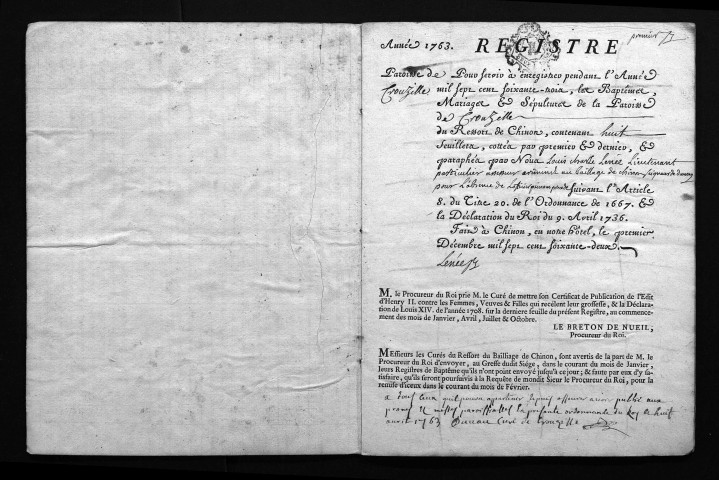 premier
Année 1763. REGISTRE
Paroisse de Crouzille
Pour servir à enregistrer pendant l'Année
mil sept cent soixante-trois, les Baptêmes,
Mariages & Sépultures de la Paroisse
de Crouzille
du Ressort de Chinon, contenant huit
feuillets, cottés par premier & dernier, &
paraphés par Nous Louis Charle Lenée Lieutenant
particulier assesseur criminel au baillage de chinon
pour L'absence de suivant l'Article
8. du Titre 20. de l'Ordonnance de 1667. &
la Déclaration du Roi du 9. Avril 1736.
Fait à Chinon, en notre hôtel, le premier
Décembre mil sept cent soixante-deux.
Lenée
M. le Procureur du Roi prie M. le Curé de mettre son Certificat de Publication de l'Edit
d'Henry II. contre les Femmes, Veuves & Filles qui recèlent leur grossesse, & la Déclara-
tion de Louis XIV. de l'année 1708. sur la derniere feuille du présent Registre, au commence-
ment des mois de Janvier, Avril, Juillet & Octobre.
LE BRETON DE NUEIL,
Procureur du Roi.
MEssieurs les Curés du Ressort du Bailliage de Chinon, sont avertis de la part de M. le
Procureur du Roi d'envoyer, au Greffe dudit Siége, dans le courant du mois de Janvier,
leurs Registres de Baptême qu'ils n'ont point envoyé jusqu'à ce jour; & faute par eux d'y sa-
tisfaire, qu'ils seront poursuivis à la Requête de mondit Sieur le Procureur du Roi, pour la
remise d'iceux dans le courant du mois de Février.
a tous ceux qu'il pourra appartenir avoir publié aux
messes paroissialles la presente ordonnance du Roy le huit
avril 1763 curé de Crouzille